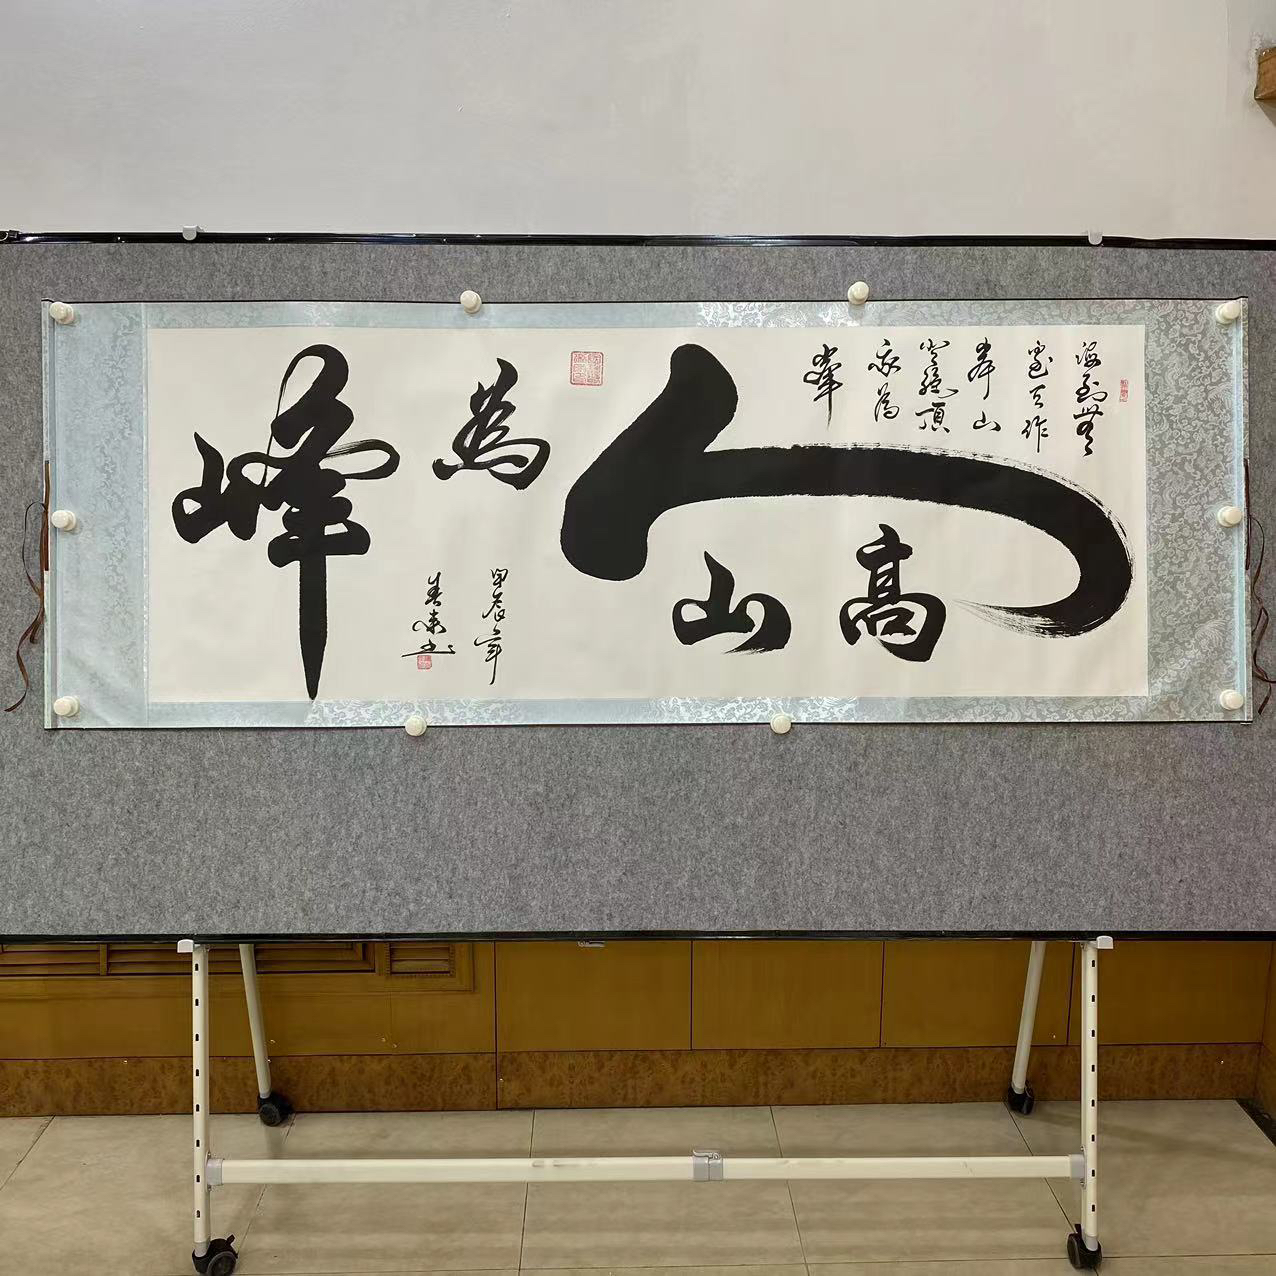 海到無
邊天作
岸山
登絕頂
我為
峯
高山人為峰
甲辰年
春来书